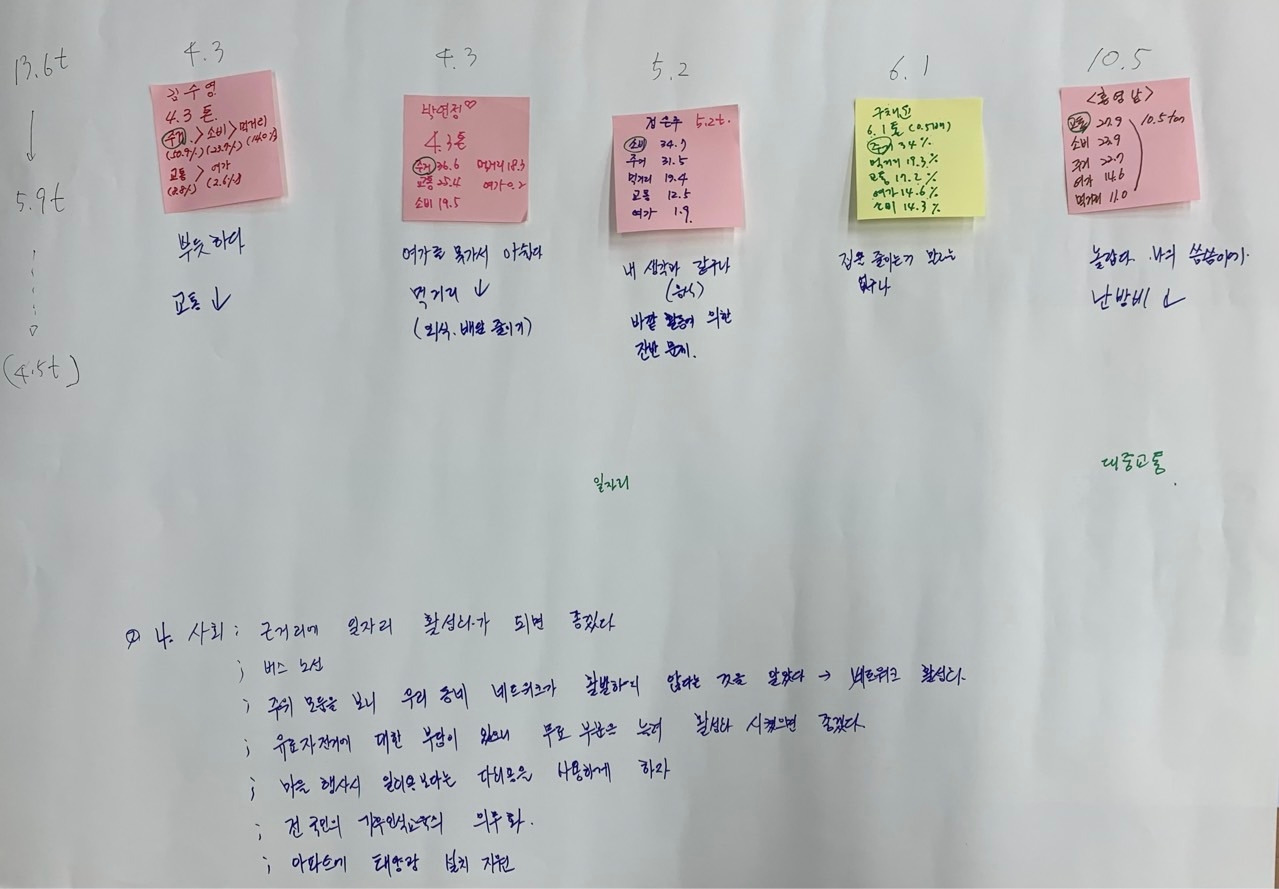 13.6t
↓
5.9t
(4.5t)
4.3
김수영
4.3 톤.
주거 > 소비 > 먹거리
(50.9%) (23.9%) (14.0%)
교통 > 여가
(2.6%)
부듯하다
교통 ↓
4.3
박연정♡
4.3톤
주거 36.6 먹거리 18.3
교통 25.4 여가 0.2
소비 19.5
여가를 못가서 아쉽다
먹거리 ↓
(외식. 배달 줄이기)
5.2
5.2t.
소비 34.7
주거 31.5
먹거리 19.4
교통 12.5
여가 1.9
내 생각과 같구나
바깥 활동에 의한
6.1
6.1 톤 (0.5배)
주거 34%
먹거리 19.3%
교통 17.2%
여가 14.6%
소비 14.3%
10.5
<홍영남>
교통 27.9
소비 23.9
주거 22.7
여가 14.6
먹거리 11.0
10.5 ton
놀랍다. 나의 씀씀이에.
난방비 ↓
일자리
대중교통.
사회 ; 근거리에 일자리 활성화가 되면 좋겠다
; 버스 노선
; 주위 모둠을 보니 우리 동네 네트워크가 활발하지 않다는 것을 알았다 → 네트워크 활성화.
; 유료자전거에 대한 부담이 있으니 무료 부분을 늘려 활성화 시켰으면 좋겠다.
; 마을 행사시 일회용보다는 다회용을 사용하게 하자
; 전 국민의 기후인식교육의 의무화.
; 아파트에 태양광 설치 지원